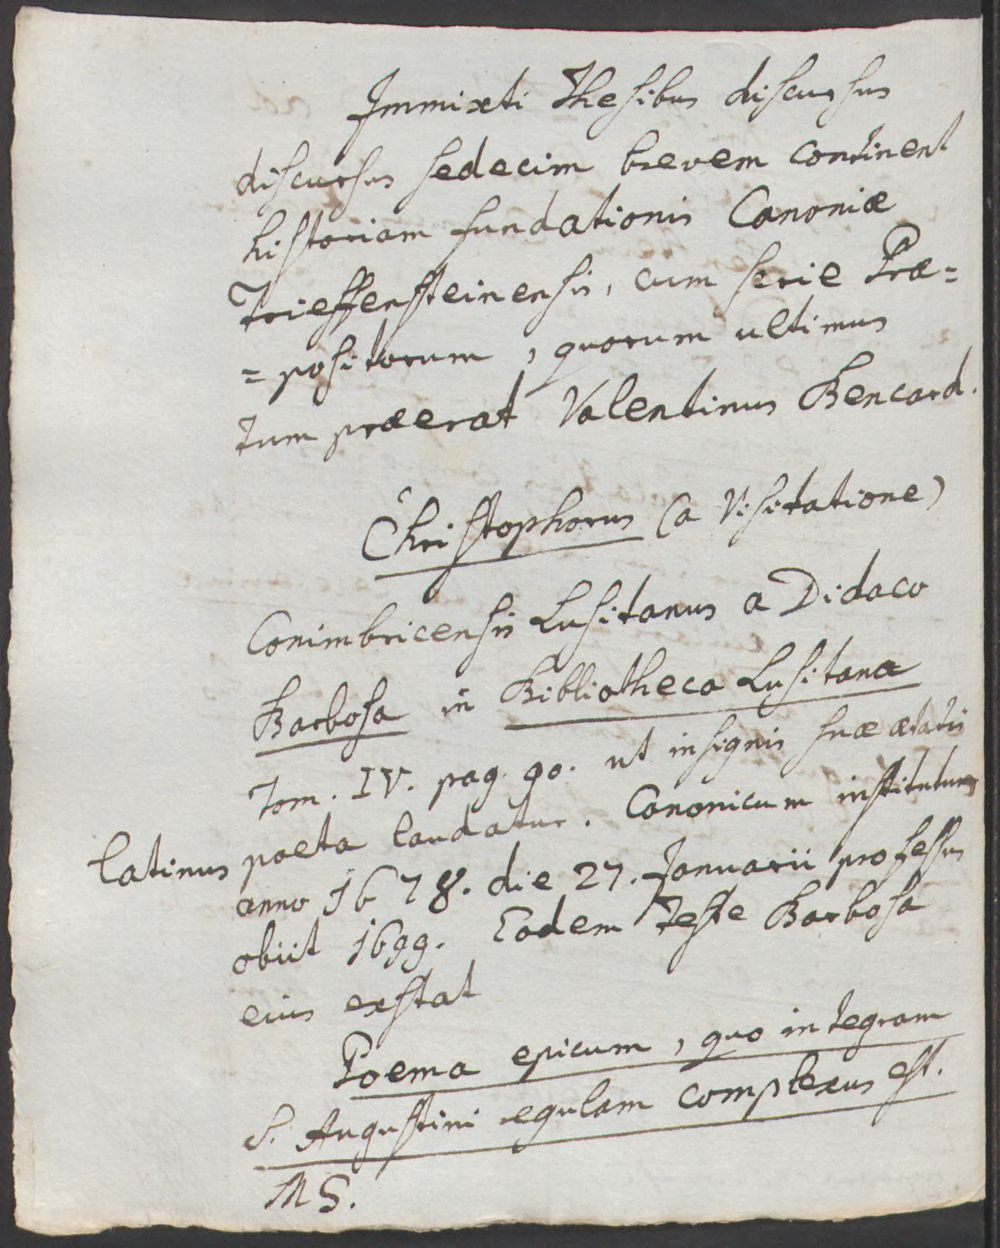 Immixti Thesibus discursus
discursus sedecim brevem continent
historiam fundationis Canoniæ
Trieffensteinensis, cum serie Præ=
=positorum, quorum ultimus
tum præerat Valentinus Bencard.
Christophorus (a Visitatione)
Conimbricensis Lusitanus a Didaco
Barbosa in Bibliotheca Lusitana
Tom. IV. pag. 90. ut insignis suæ ætatis
Latinus poeta laudatur. Canonicum institutum
anno 1678. die 27. Januarii professus
obiit 1699. Eodem teste Barbosa
eius exstat
Poema epicum, quo integram
S. Augustini regulam complexus est.
MS.